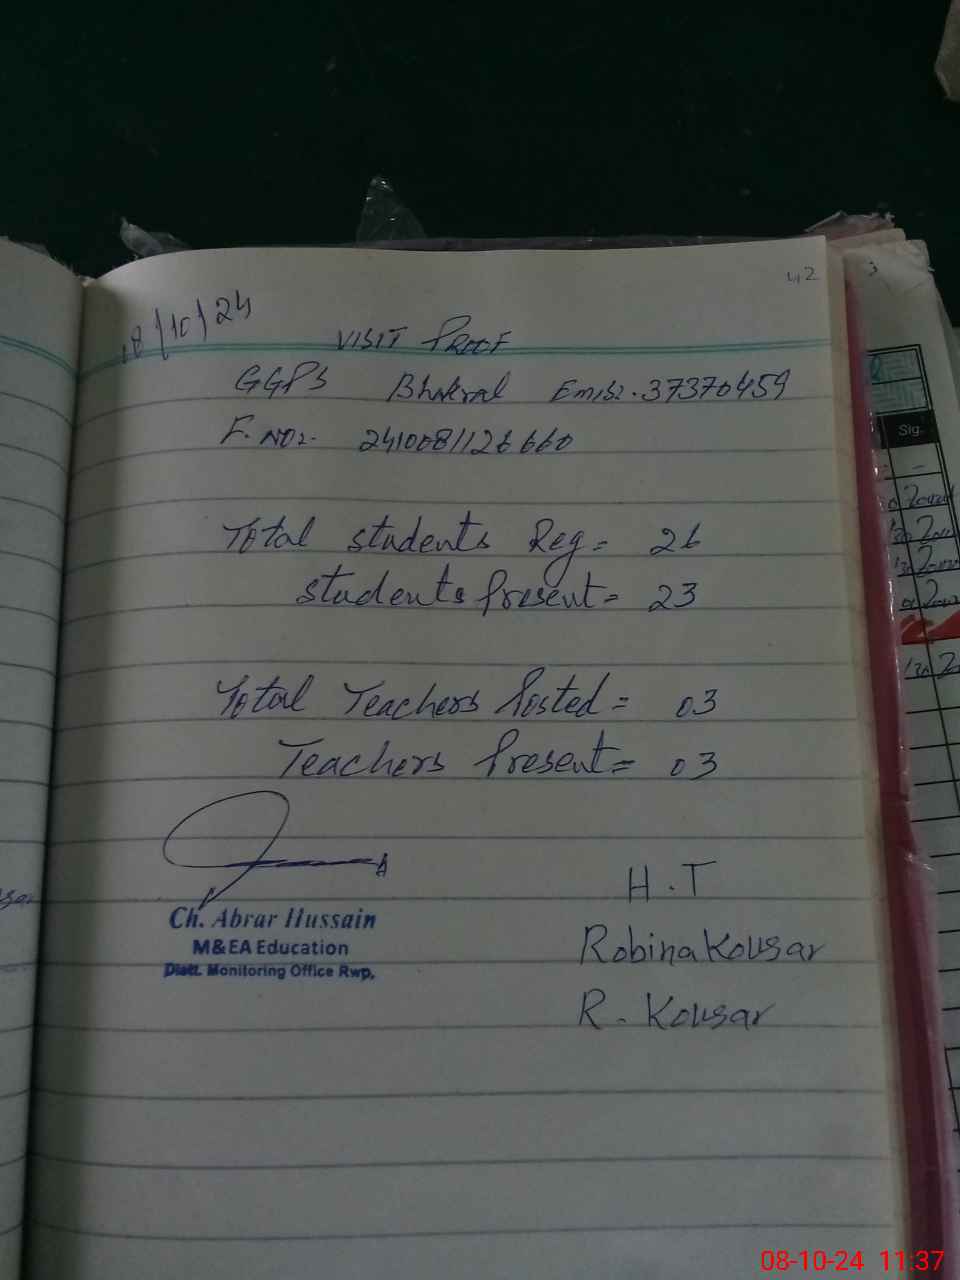 42
8/10/24
VISIT PROOF
GGPS Bhakral Emis:. 37370459
F. NO:. 2410081126660
Total students Reg = 26
students Present = 23
Total Teachers Posted = 03
Teachers Present = 03
Ch. Abrar Hussain
M&EA Education
Distt. Monitoring Office Rwp.
H.T
Robina Kousar
R. Kousar
3
Sig.
08-10-24 11:37